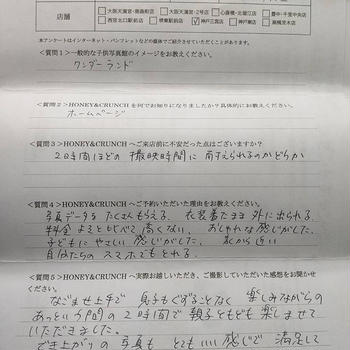 店舗
大阪天満宮・南森町店
大阪天満宮・2号店
心斎橋・北堀江店
豊中・千里中央店
西宮北口駅前店
堺東駅前店
神戸三宮店
神戸灘店
高槻茨木店
本アンケートはインターネット・パンフレットなどの媒体でご紹介させていただくことがあります。
＜質問１＞一般的な子供写真館のイメージをお教えください。
ワンダーランド
＜質問２＞HONEY&CRUNCHを何でお知りになりましたか？具体的にお教えください。
ホームページ
＜質問３＞HONEY&CRUNCHへご来店前に不安だった点はございますか？
2時間ほどの撮映時間に耐えられるのかどうか
＜質問４＞HONEY&CRUNCHへご予約いただいた理由をお教えください。
写真データをたくさんもらえる、衣装着たまま外に出られる
料金よそと比べて高くない、おしゃれな感じがした。
子どもにやさしい感じがした。家から近い
自分たちのスマホでもとれる。
＜質問５＞HONEY&CRUNCHへ実際お越しいただき、ご撮影していただいた感想をお聞かせください。
なごませ上手で息子もぐずることなく楽しみながらの
あっという間の2時間で親子ともども楽しませて
いただきました。
でき上がりの写真もとてもいい感じで満足して